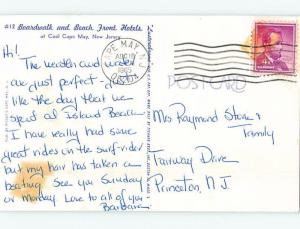 #12 Boardwalk and Beach Front Hotels
at Cool Cape May, New Jersey
PE MAY N.J.
AUG 18
1965
POSTCARD
Hi!
The weather and water
are just perfect - just
like the day that we
spent at Island Beach.
I have really had some
great rides in the surf-rider
but my hair has taken a
beating. See you Sunday
or Monday. Love to all of you
Barbara
Mrs Raymond Stone &
Family
Fairway Drive
Princeton, N.J.